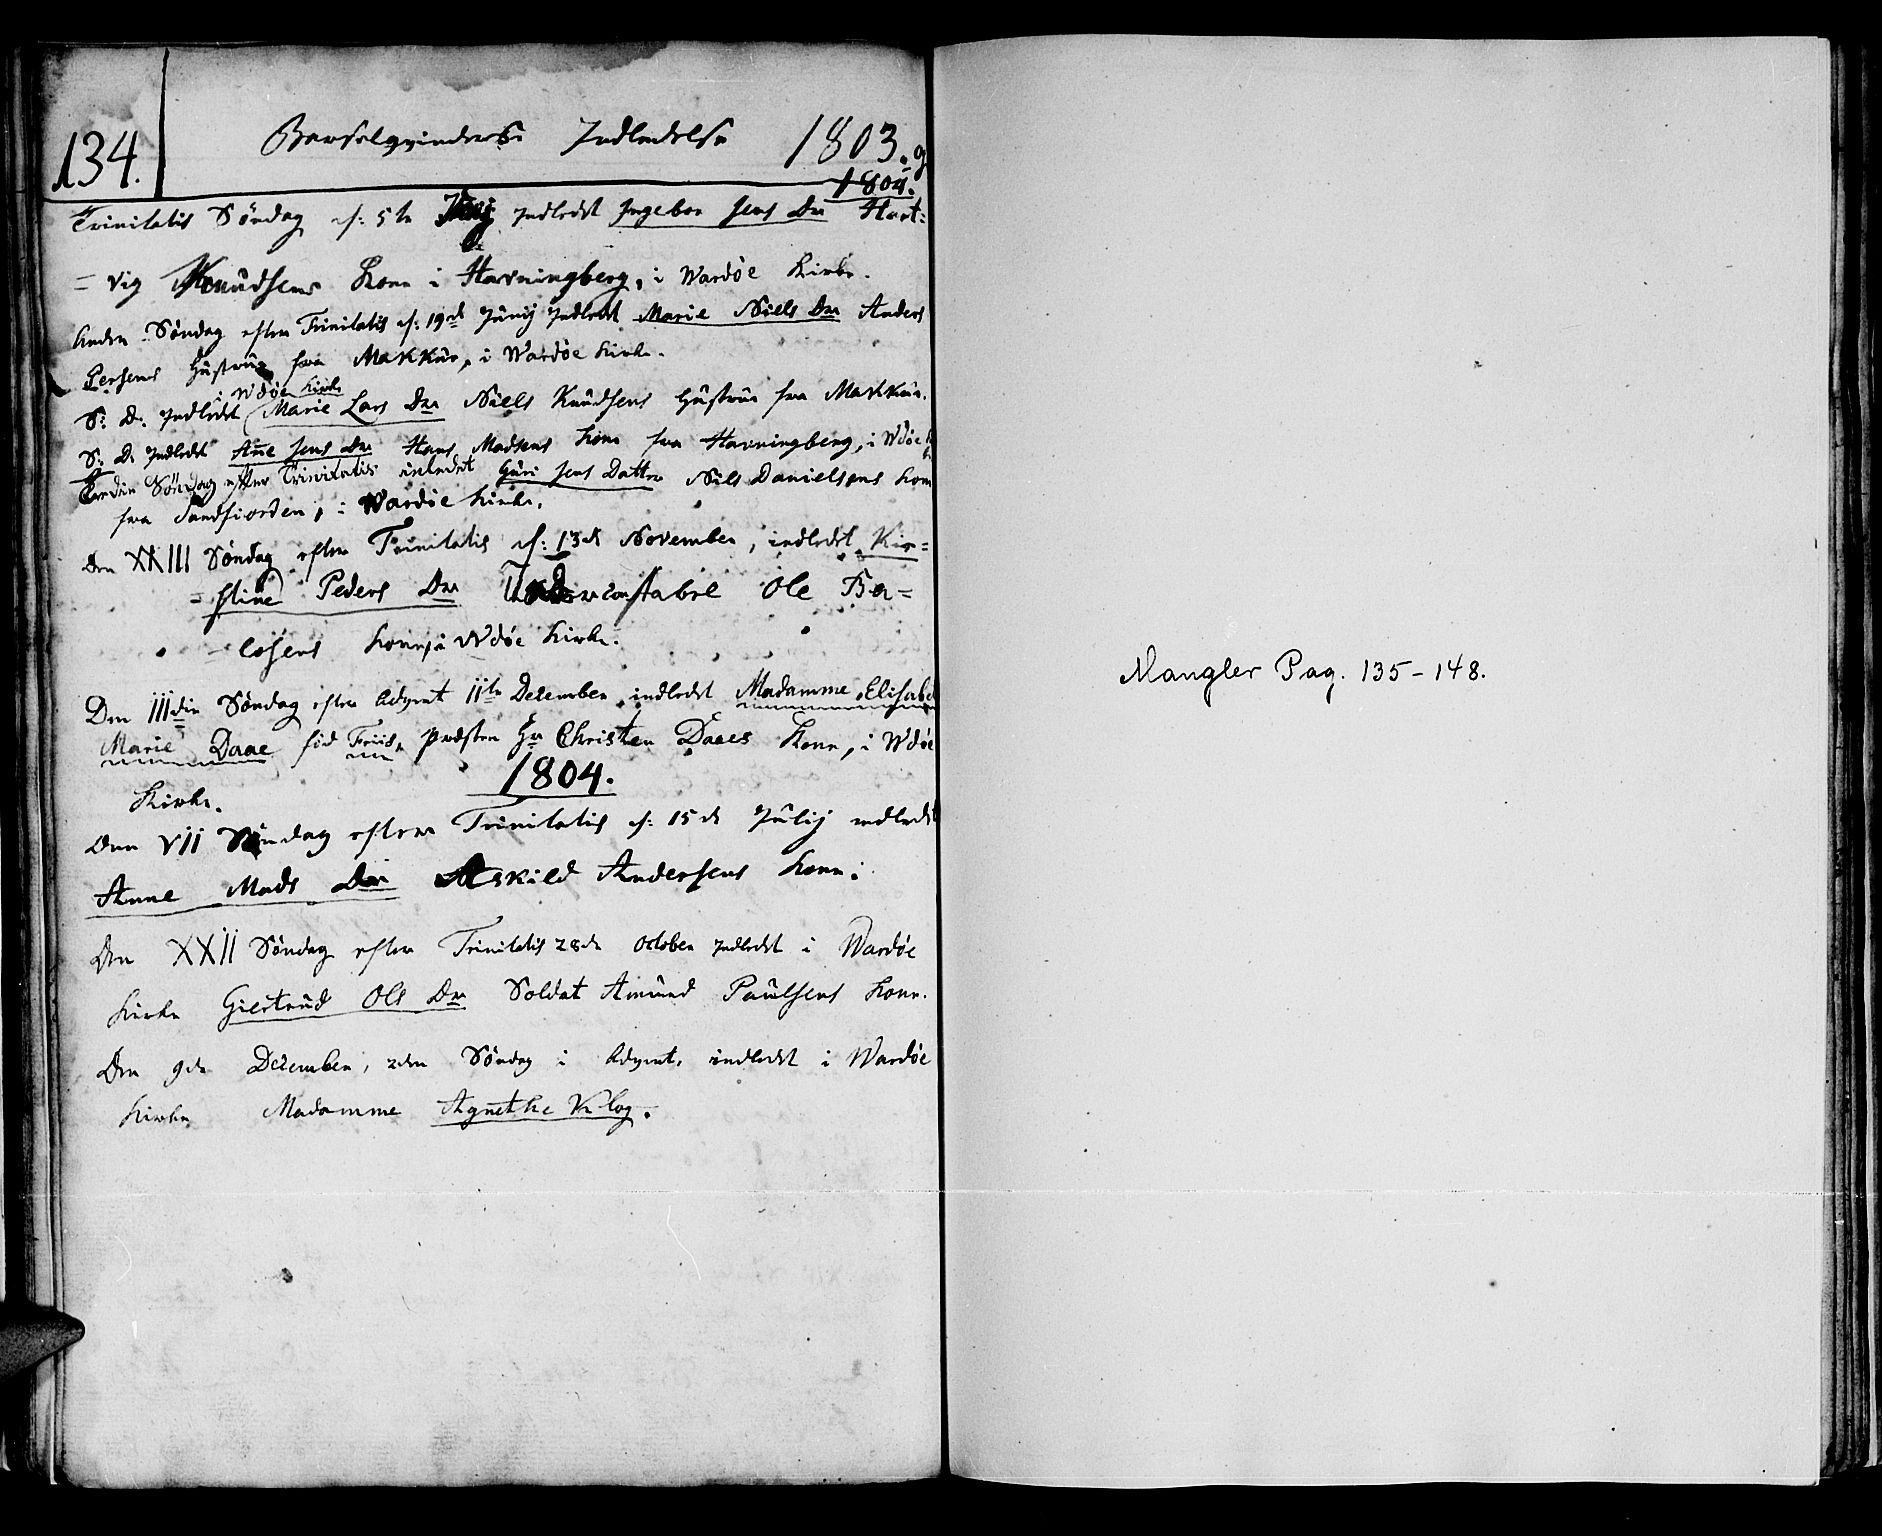 134.
Barselqvinders Indledelse 1803. og
1804.
Trinitatis Søndag d: 5te Junij Indledet Ingebor Jens Dr Hart=
= vig Knudsens Kone i Havningberg, i Wardøe Kirke.
Anden Søndag efter Trinitatis d: 19de Junij Indledt Marie Niels Dr Anders
Persens Hustrue fra Makkur, i Wardøe Kirke.
i Wdøe Kirke
S: D: Indledet Marie Lars Dr Niels Knudsens Hustrue fra Makkur.
S: D: Indledet Añe Jens Dr Hans Madsens Kone fra Havningberg, i Wdøe K
Tredie Søndag efter Trinitatis inledet Guri Jens Datter Niels Danielsens Kone
fra Sandfiorden, i Wardøe Kirke.
Den XXIII Søndag efter Trinitatis d: 13de November, indledet Kir=
= stine Peders Dr Underconstabel Ole Ba=
= losens Kone, i Wdøe Kirke.
Den IIIdie Søndag efter Advent 11te Dezember indledet Madamme Elisabet
Marie Daae fød Friis, Præsten Hr Christen Daaes Kone, i Wdøe
Kirke.
1804.
Den VII Søndag efter Trinitatis d: 15de Julij indledet
Anne Mads Dr Askild Andersens Kone.
Den XXII Søndag efter Trinitatis 28de October Indledet i Wardøe
Kirke Giertrud Ols Dr Soldat Amund Paulsens Kone.
Den 9de Dezember, 2den Søndag i Advent, indledet i Wardøe
Kirke Madamme Agnethe Klog.
Mangler Pag. 135-148.